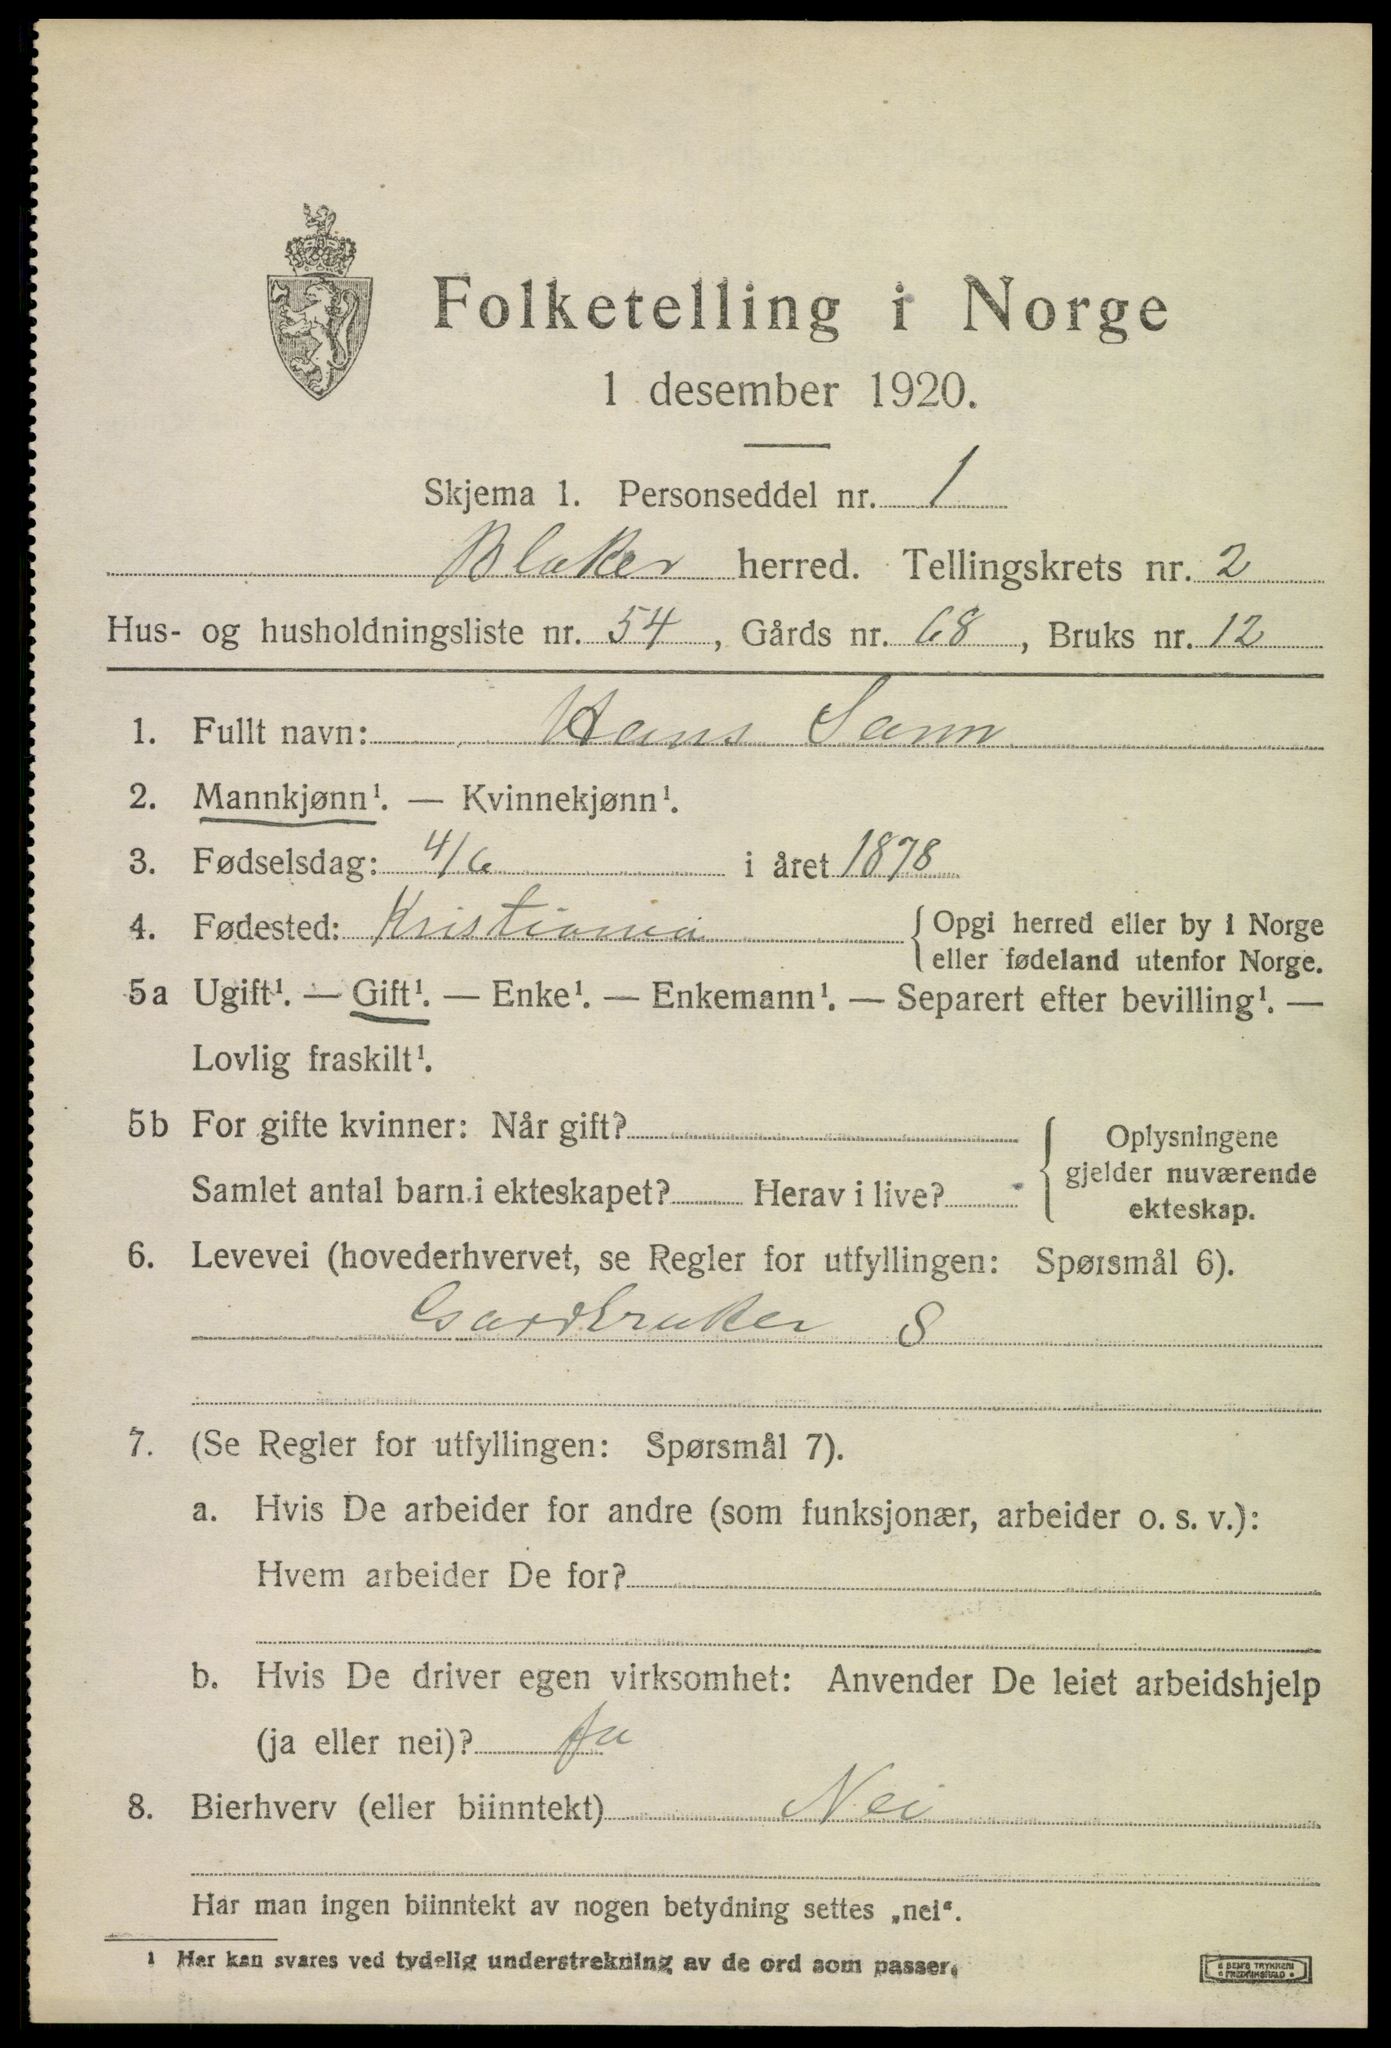 Folketelling i Norge
1 desember 1920.
Skjema 1. Personseddel nr. 1
Blaker herred. Tellingskrets nr. 2
Hus- og husholdningsliste nr. 54, Gårds nr. 68, Bruks nr. 12
1. Fullt navn: Hans Sann
2. Mannkjønn¹. — Kvinnekjønn¹.
3. Fødselsdag: 4/6 i året 1878
4. Fødested: Kristiania { Opgi herred eller by i Norge
eller fødeland utenfor Norge.
5a Ugift¹. — Gift¹. — Enke¹. — Enkemann¹. — Separert efter bevilling¹. —
Lovlig fraskilt¹.
5b For gifte kvinner: Når gift?
Samlet antal barn i ekteskapet? Herav i live?
{ Oplysningene
gjelder nuværende
ekteskap.
6. Levevei (hovederhvervet, se Regler for utfyllingen: Spørsmål 6).
Gardbruker S
7. (Se Regler for utfyllingen: Spørsmål 7).
a. Hvis De arbeider for andre (som funksjonær, arbeider o. s. v.):
Hvem arbeider De for?
b. Hvis De driver egen virksomhet: Anvender De leiet arbeidshjelp
(ja eller nei)? Ja
8. Bierhverv (eller biinntekt) Nei
Har man ingen biinntekt av nogen betydning settes „nei“.
¹ Her kan svares ved tydelig understrekning av de ord som passer.
E SEM'S TRYKKERI
FREDRIKSHALD